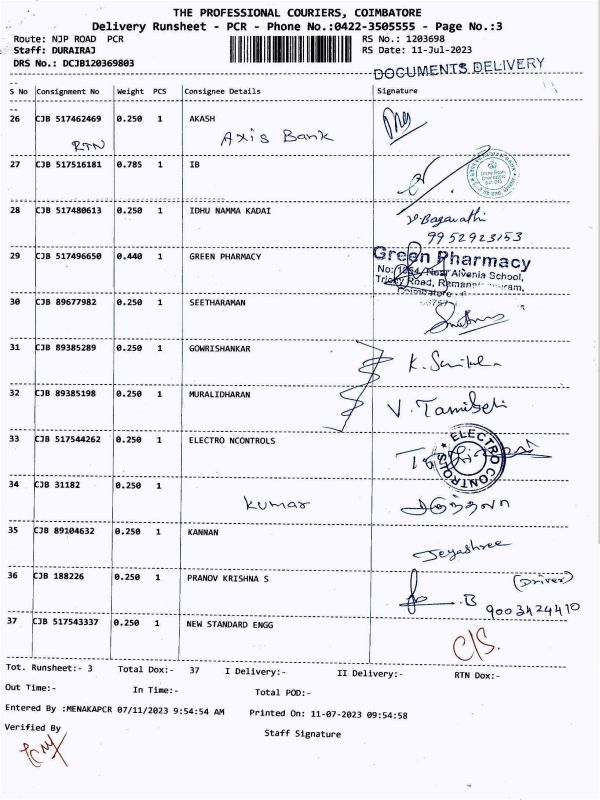 THE PROFESSIONAL COURIERS, COIMBATORE
Delivery Runsheet - PCR - Phone No.:0422-3505555 - Page No.:3
Route: NJP ROAD PCR RS No.: 1203698
Staff: DURAIRAJ RS Date: 11-Jul-2023
DRS No.: DCJB120369803
DOCUMENTS DELIVERY
S No Consignment No Weight PCS Consignee Details Signature
26 CJB 517462469 0.250 1 AKASH
RTN Axis Bank
27 CJB 517516181 0.785 1 IB
28 CJB 517480613 0.250 1 IDHU NAMMA KADAI
V. Bagavathi
9952923153
29 CJB 517496650 0.440 1 GREEN PHARMACY
Green Pharmacy
Near Alvenia School,
Road,
30 CJB 89677982 0.250 1 SEETHARAMAN
31 CJB 89385289 0.250 1 GOWRISHANKAR
32 CJB 89385198 0.250 1 MURALIDHARAN
V. Tamilselvi
33 CJB 517544262 0.250 1 ELECTRO NCONTROLS
ELECTRO CONTROLS
34 CJB 31182 0.250 1
Kumar
35 CJB 89104632 0.250 1 KANNAN
Jeyashree
36 CJB 188226 0.250 1 PRANOV KRISHNA S
(Driver)
.B 9003424410
37 CJB 517543337 0.250 1 NEW STANDARD ENGG
C/S.
Tot. Runsheet:- 3 Total Dox:- 37 I Delivery:- II Delivery:- RTN Dox:-
Out Time:- In Time:- Total POD:-
Entered By :MENAKAPCR 07/11/2023 9:54:54 AM Printed On: 11-07-2023 09:54:58
Verified By Staff Signature